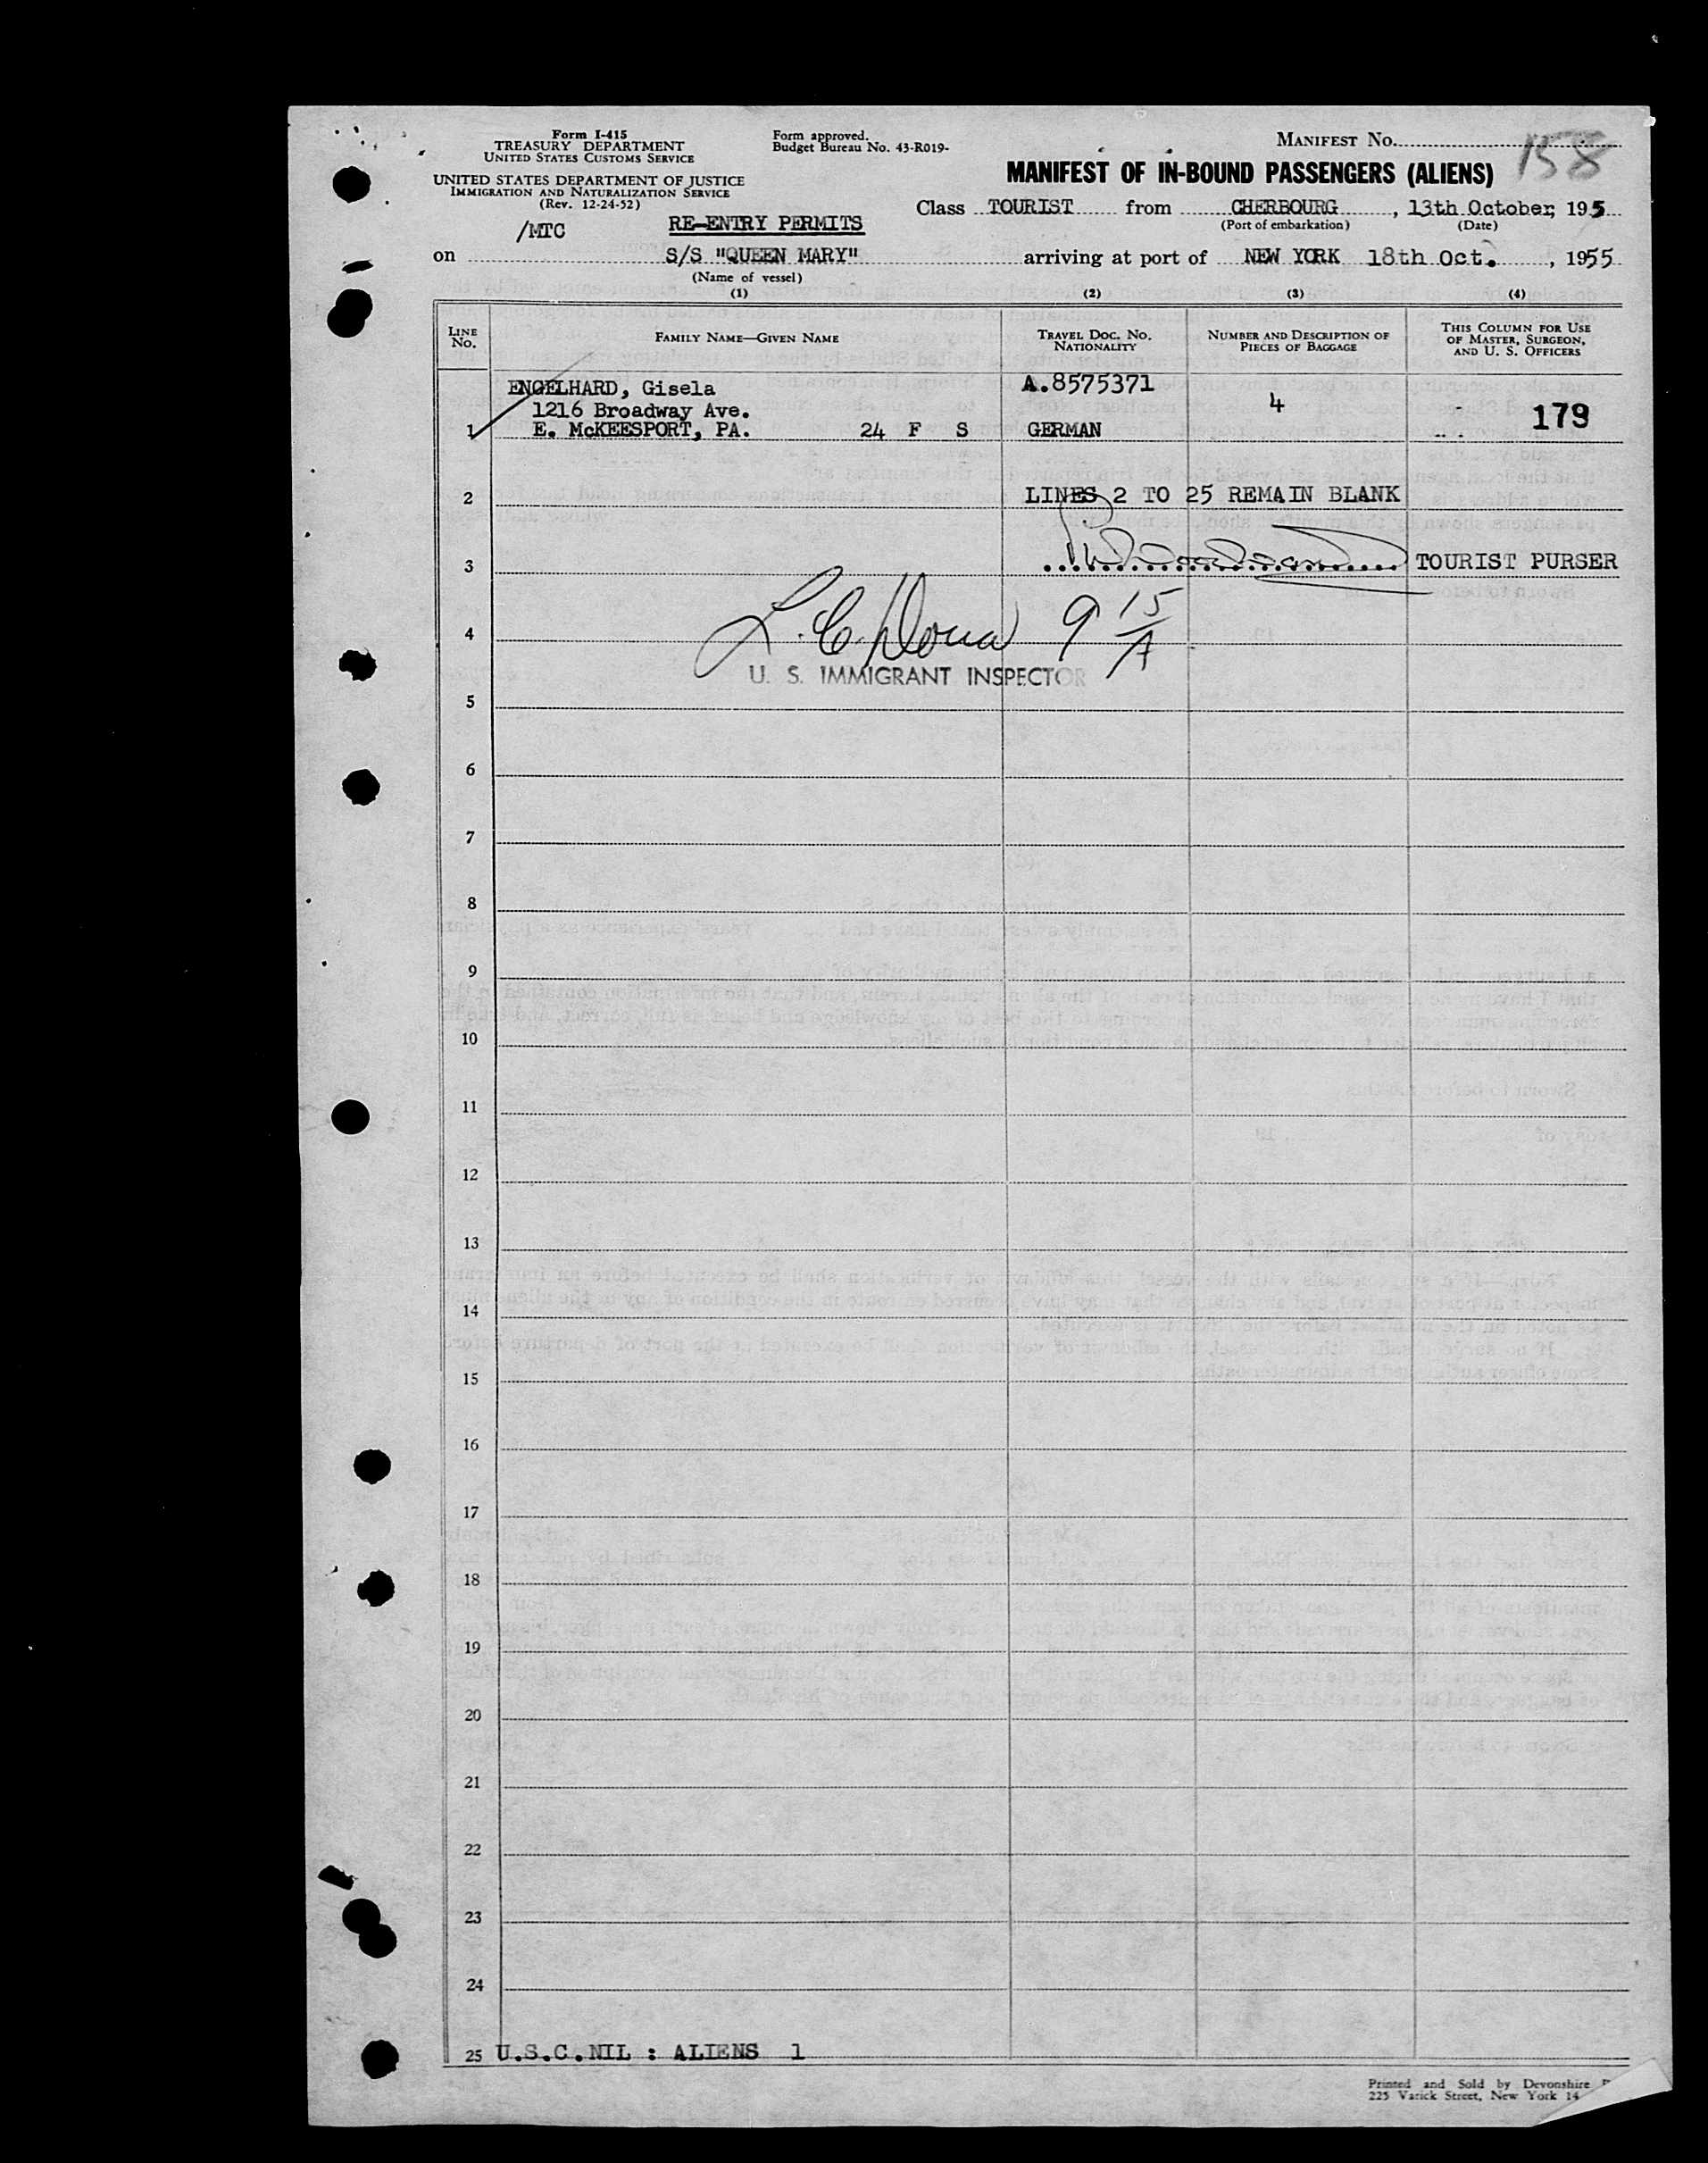 Form I-415
TREASURY DEPARTMENT
UNITED STATES CUSTOMS SERVICE
UNITED STATES DEPARTMENT OF JUSTICE
IMMIGRATION AND NATURALIZATION SERVICE
(Rev. 12-24-52)
Form approved.
Budget Bureau No. 43-R019-
MANIFEST NO. 158
MANIFEST OF IN-BOUND PASSENGERS (ALIENS)
Class TOURIST from CHERBOURG, 13th October, 195
(Port of embarkation) (Date)
/MTC RE-ENTRY PERMITS
on S/S "QUEEN MARY" arriving at port of NEW YORK 18th Oct., 1955
(Name of vessel)
(1) (2) (3) (4)
LINE No. FAMILY NAME—GIVEN NAME TRAVEL DOC. NO. NATIONALITY NUMBER AND DESCRIPTION OF PIECES OF BAGGAGE THIS COLUMN FOR USE OF MASTER, SURGEON, AND U. S. OFFICERS
ENGELHARD, Gisela A.8575371
1216 Broadway Ave. 4 179
1 E. McKEESPORT, PA. 24 F S GERMAN
2 LINES 2 TO 25 REMAIN BLANK
3 TOURIST PURSER
4 L. C. 9 15/A
U. S. IMMIGRANT INSPECTOR
5
6
7
8
9
10
11
12
13
14
15
16
17
18
19
20
21
22
23
24
25 U.S.C.NIL : ALIENS 1
Printed and Sold by Devonshire
225 Varick Street, New York 14